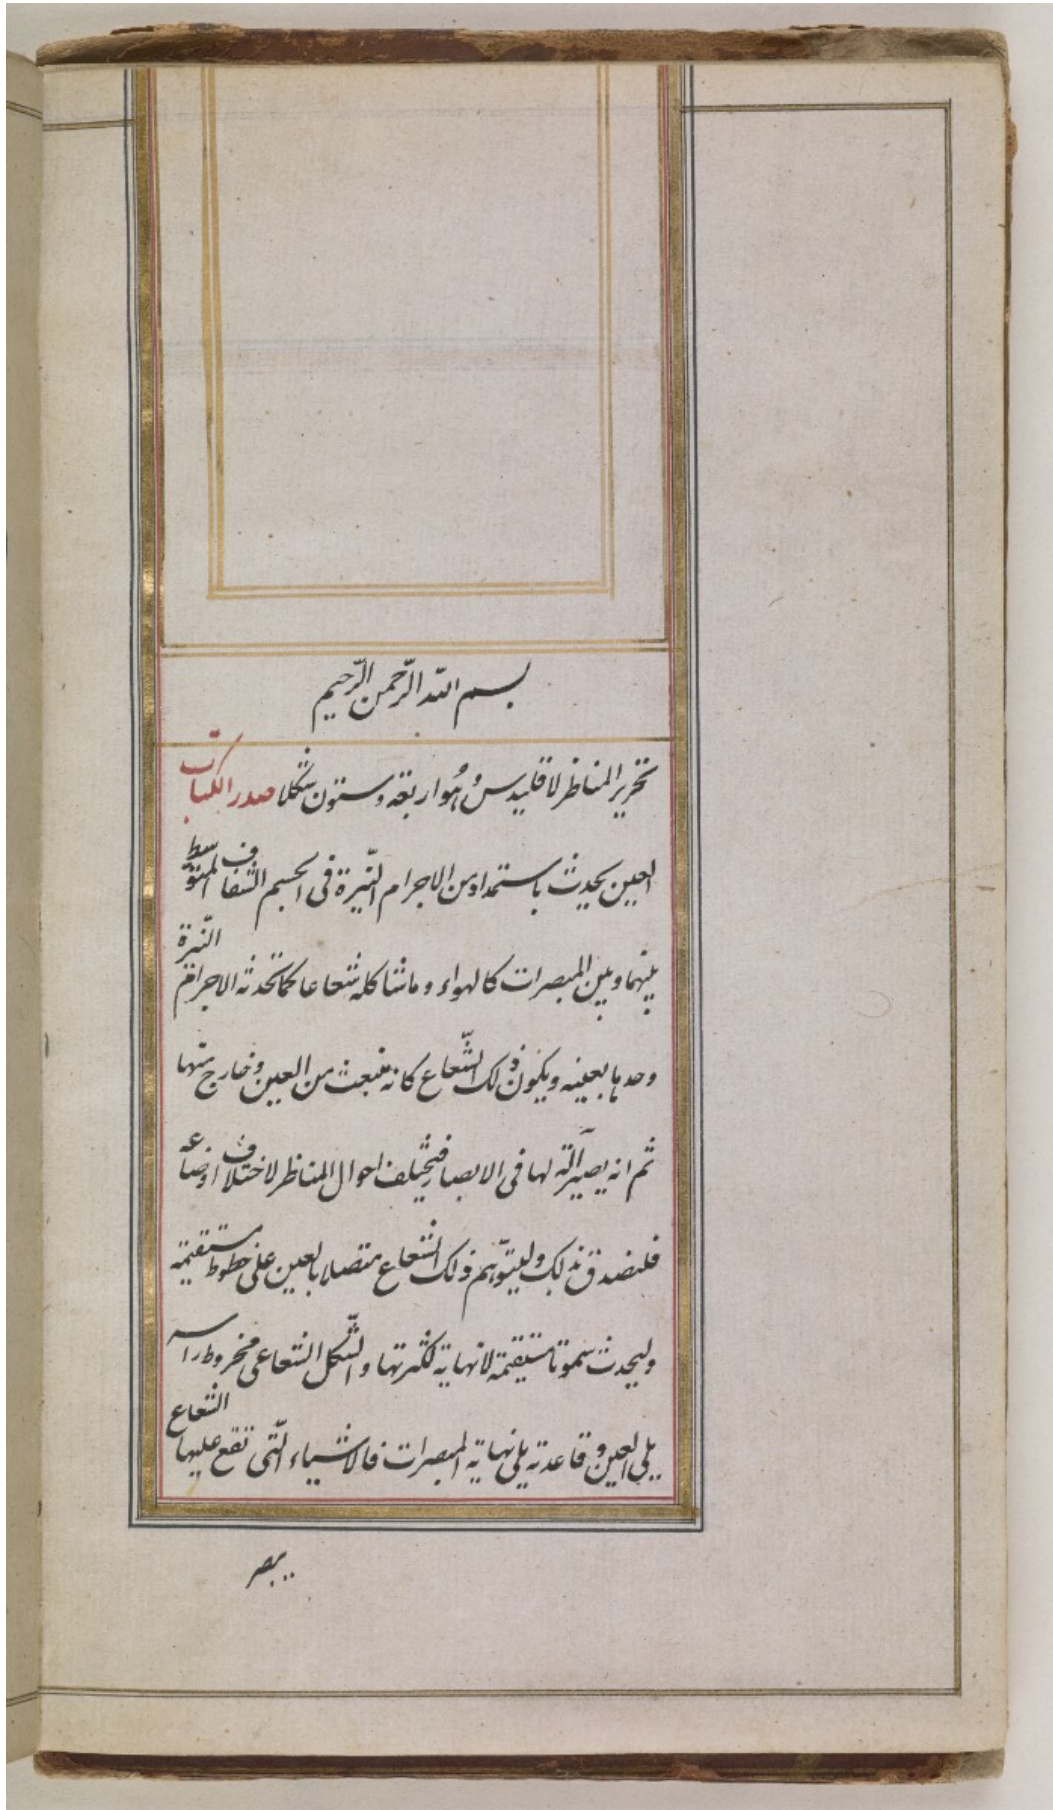 بسم الله الرّحمن الرّحيم
تحرير المناظر لاقليدس وُهُو اربعة وستون شكلا صدر الكتاب
العين يحدث باستمداد من الاجرام النّيرة فى الجسم الشفاف المتوسّط
بينها وبين المبصرات كالهواء وما شاكله شعاعا كما تحدثه الاجرام النّيرة
وحدها بعينه ويكون ذلك الشّعاع كانه منبعث من العين وخارج منها
ثم انه يصير آلة لها فى الابصار فيختلف احوال المناظر لاختلاف اوضاعه
فلنصدق بذلك وليتوّهم ذلك الشعاع متصلا بالعين على خطوط مستقيمة
وليحدث سموتا مستقيمة لا نهاية لكثرتها والشّكل الشعاعى مخروط راسه
يلى العين وقاعدته يلى نهاية المبصرات فالاشياء الّتى تقع عليها الشعاع
يبصر